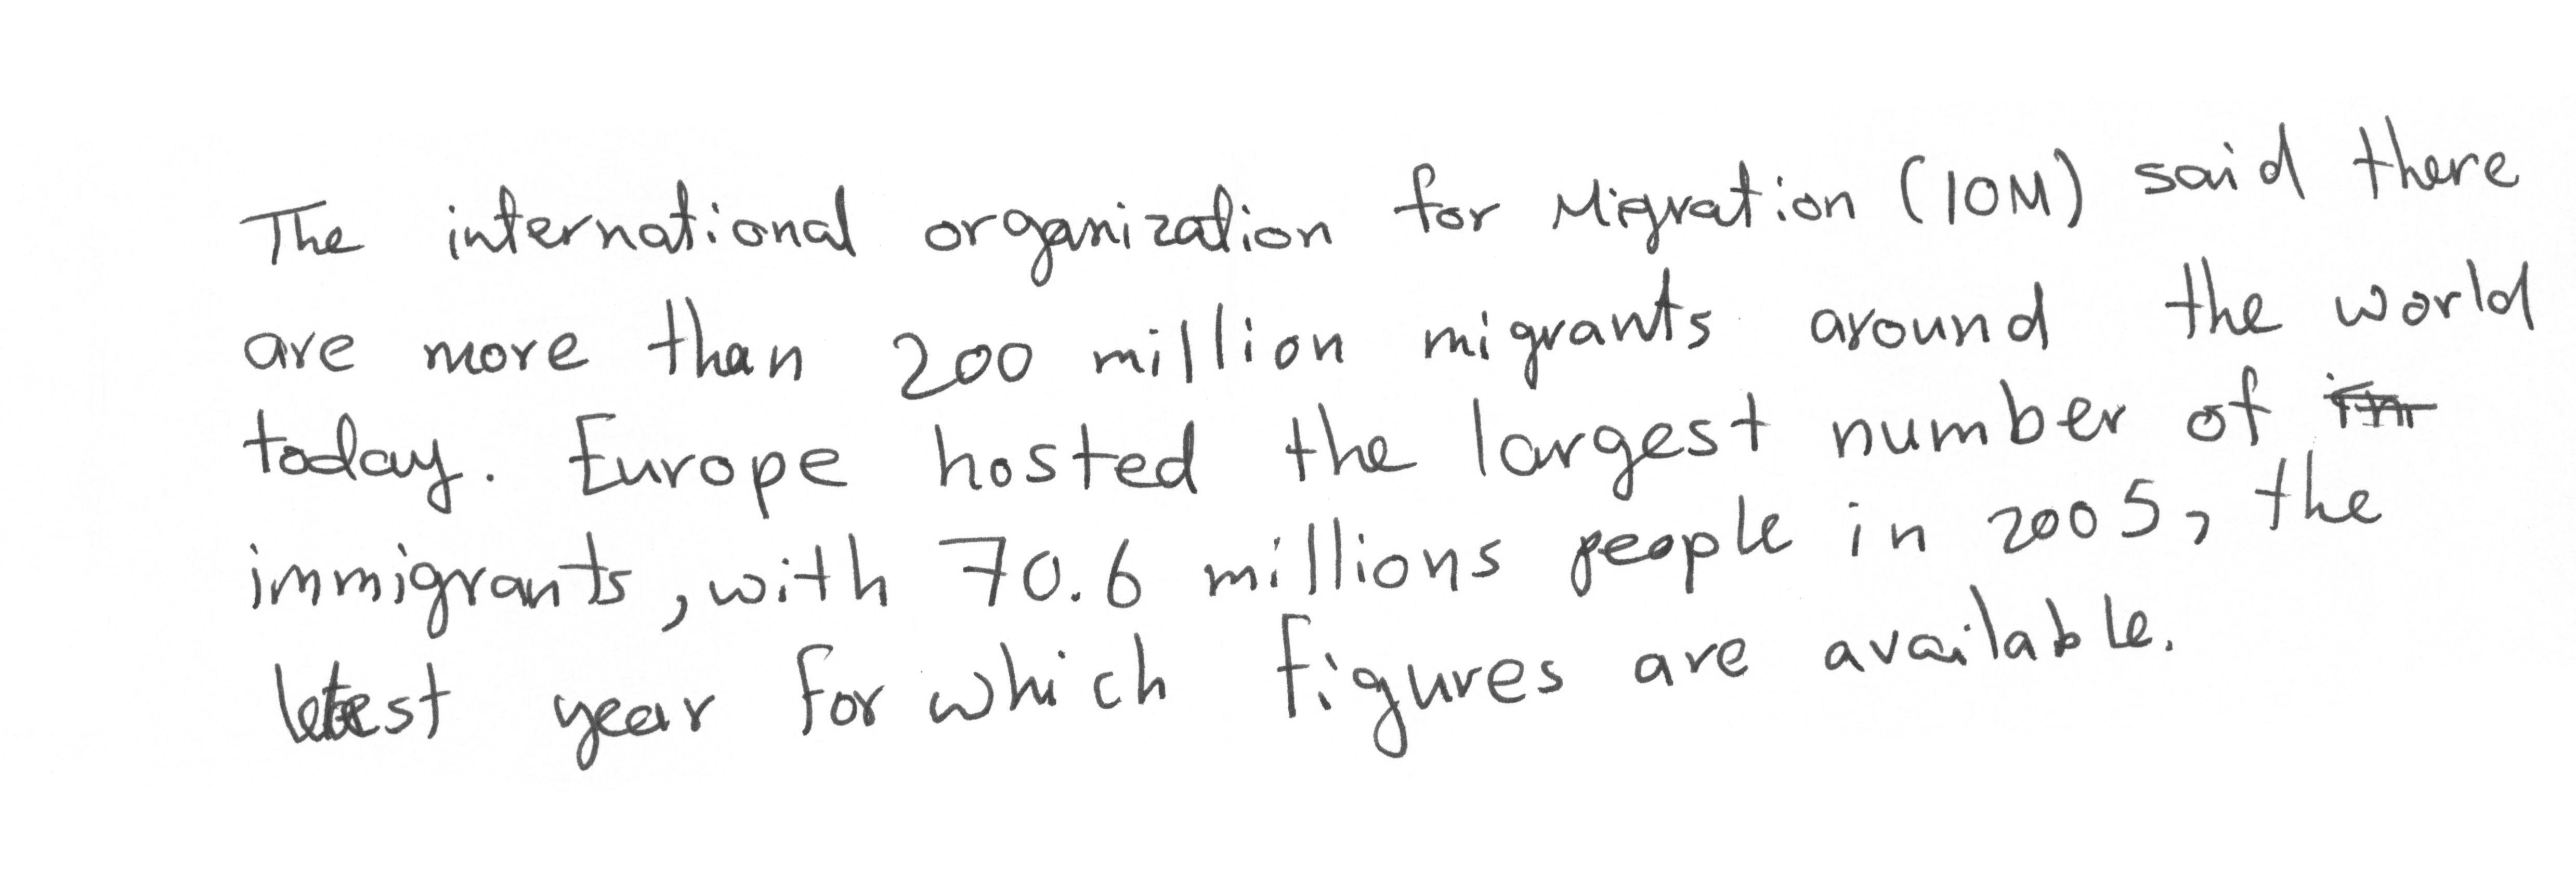 The international organization for Migration (IOM) said there
are more than 200 million migrants around the world
today. Europe hosted the largest number of
immigrants, with 70.6 millions people in 2005, the
latest year for which figures are available.